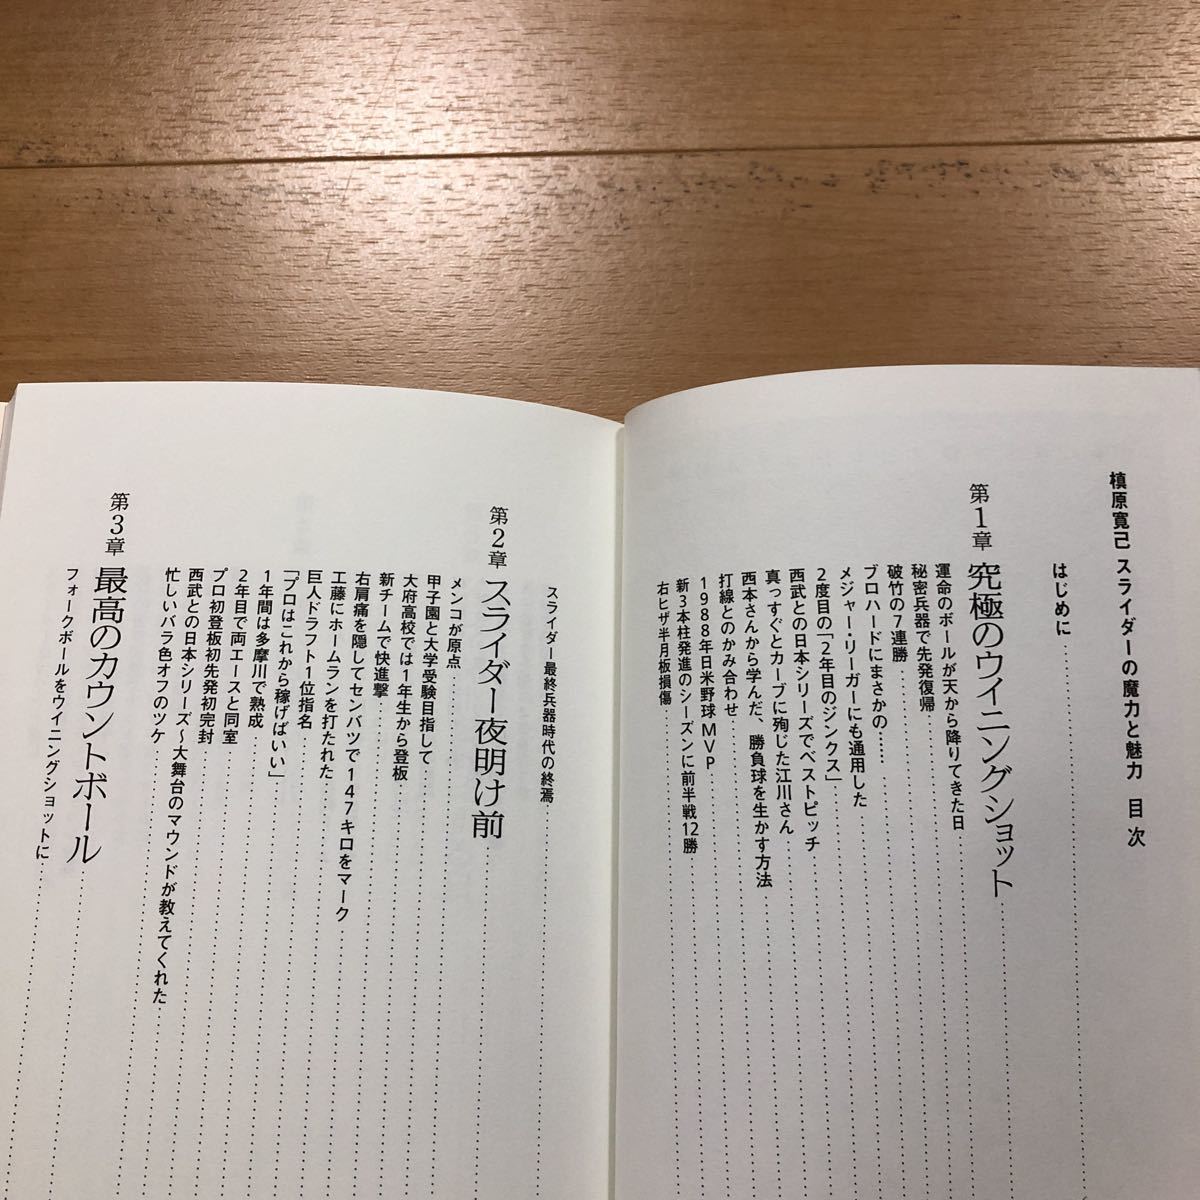 槙原寛己 スライダーの魔力と魅力 目次
はじめに
第1章 究極のウイニングショット
運命のボールが天から降りてきた日
秘密兵器で先発復帰
破竹の7連勝
ブロハードにまさかの……
メジャー・リーガーにも通用した
2度目の「2年目のジンクス」
西武との日本シリーズでベストピッチ
真っすぐとカーブに殉じた江川さん
西本さんから学んだ、勝負球を生かす方法
打線とのかみ合わせ
1988年日米野球MVP
新3本柱発進のシーズンに前半戦12勝
右ヒザ半月板損傷
スライダー最終兵器時代の終焉
第2章 スライダー夜明け前
メンコが原点
甲子園と大学受験目指して
大府高校では1年生から登板
新チームで快進撃
右肩痛を隠してセンバツで147キロをマーク
工藤にホームランを打たれた
巨人ドラフト1位指名
「プロはこれから稼げばいい」
1年間は多摩川で熟成
2年目で両エースと同室
プロ初登板初先発初完封
西武との日本シリーズ〜大舞台のマウンドが教えてくれた
忙しいバラ色オフのツケ
第3章 最高のカウントボール
フォークボールをウイニングショットに